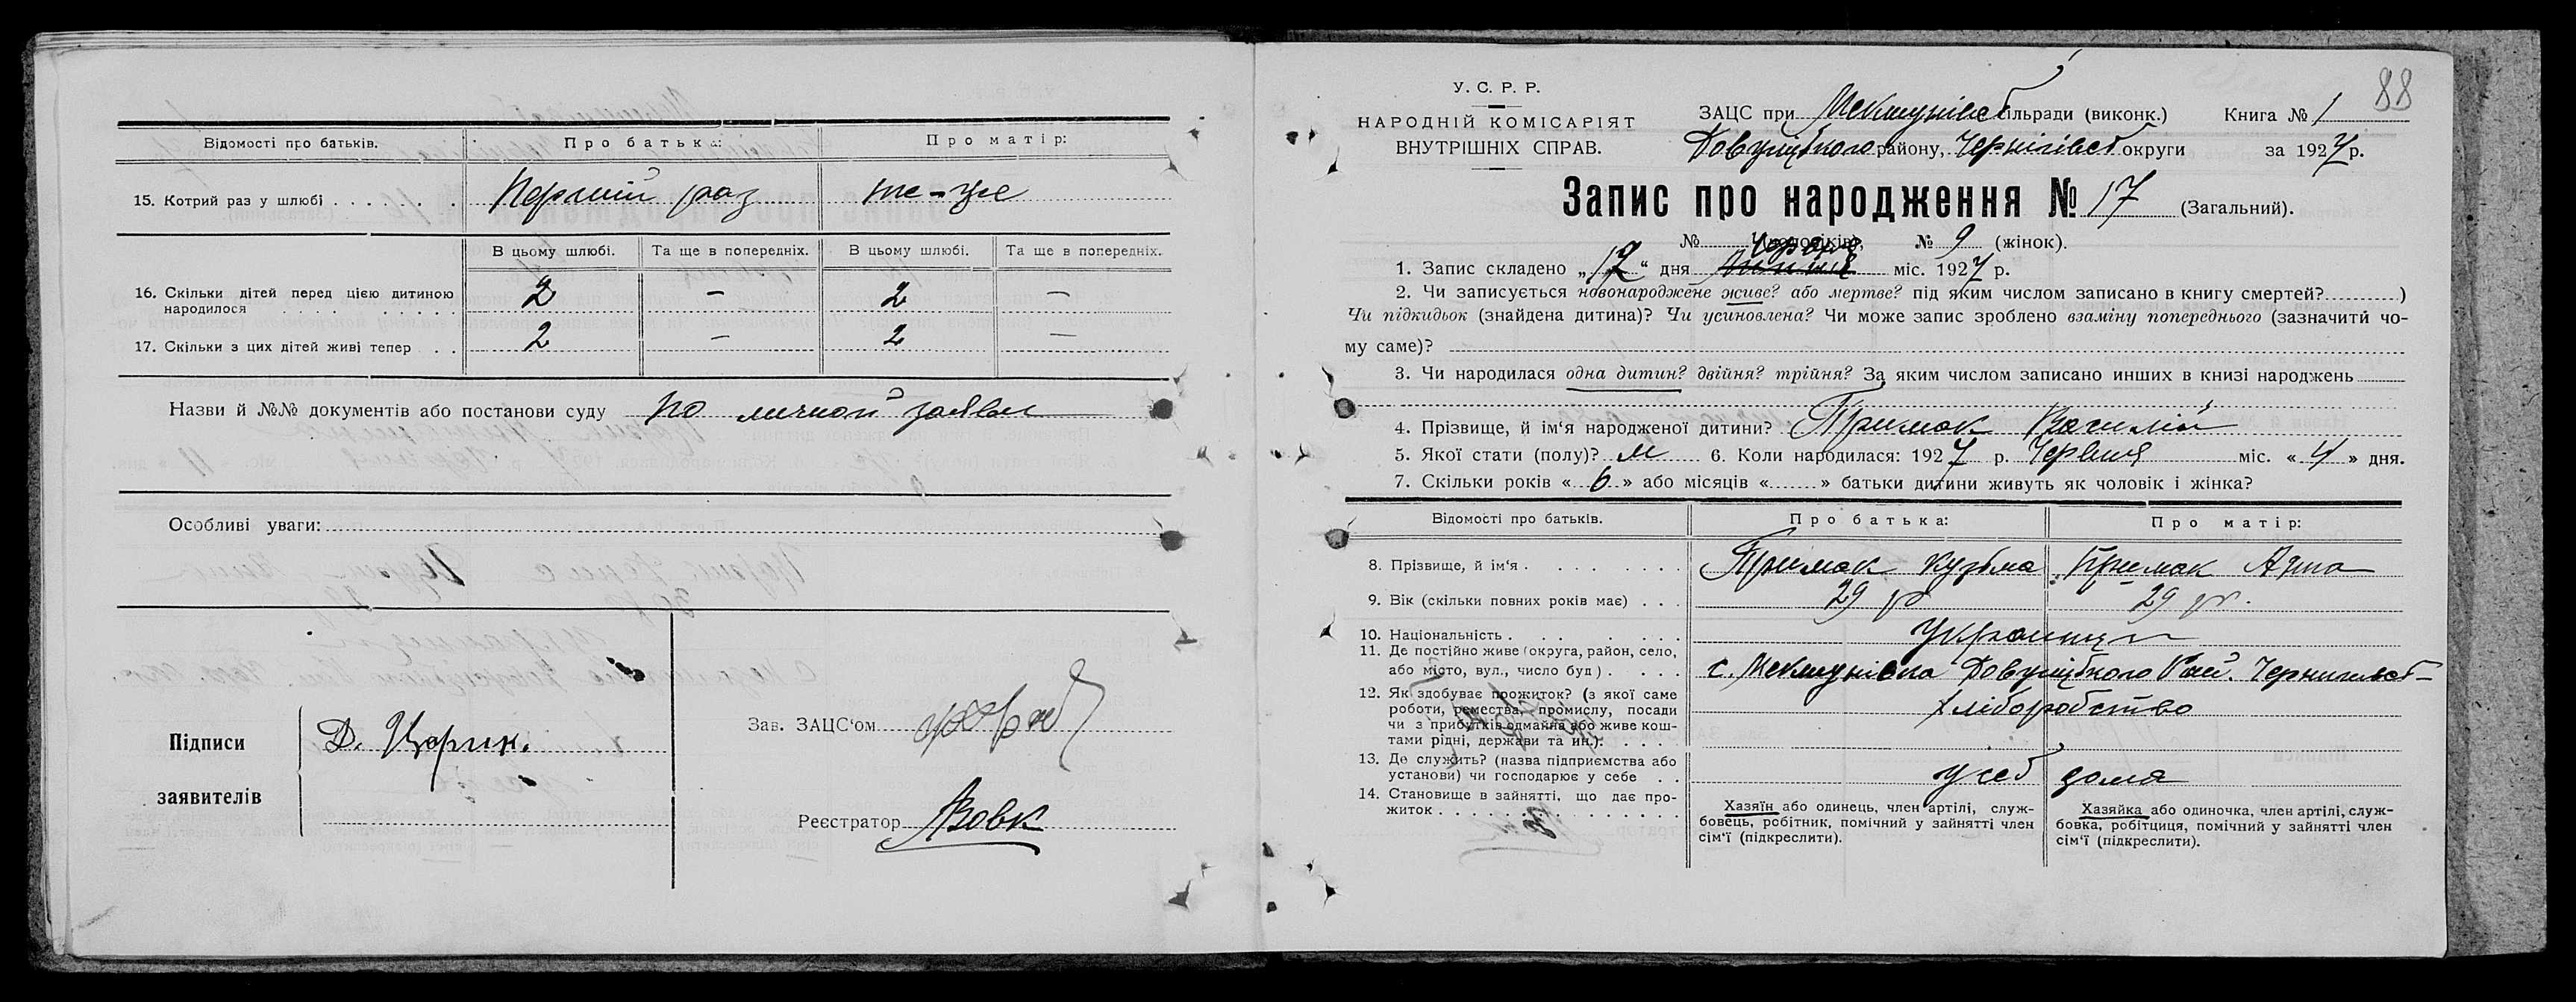 Відомості про батьків. Про батька: Про матір:
15. Котрий раз у шлюбі . . . . . . Перший раз те-же
В цьому шлюбі. Та ще в попередніх. В цьому шлюбі. Та ще в попередніх.
16. Скільки дітей перед цією дитиною
народилося . . . . . . . 2 – 2 –
17. Скільки з цих дітей живі тепер . . . 2 – 2 –
Назви й №№ документів або постанови суду по личной заяві
Особливі уваги:
Підписи
заявителів
Д. Царик.
Зав. ЗАЦС‘ом
Реєстратор Вовк
88
У. С. Р. Р.
НАРОДНІЙ КОМІСАРІЯТ
ВНУТРІШНІХ СПРАВ.
ЗАЦС при сільради (виконк.) Книга № 1
району, Чернігівсь округи за 1927 р.
Запис про народження № 17 (Загальний).
№ (чоловіків), № 9 (жінок).
1. Запис складено „17“ дня Червня міс. 1927 р.
2. Чи записується новонароджене живе? або мертве? під яким числом записано в книгу смертей? )
Чи підкидьок (знайдена дитина)? Чи усиновлена? Чи може запис зроблено взаміну попереднього (зазначити чо-
му саме)?
3. Чи народилася одна дитин? двійня? трійня? За яким числом записано инших в книзі народжень
4. Прізвище, й ім‘я народженої дитини? Примак Василій
5. Якої стати (полу)? м 6. Коли народилася: 1927 р. Червня міс. « 4 » дня.
7. Скільки років « 6 » або місяців « » батьки дитини живуть як чоловік і жінка?
Відомості про батьків. Про батька: Про матір:
8. Прізвище, й ім‘я . . . . . . Примак Кузьма Примак Анна
9. Вік (скільки повних років має) . . . 29 р 29 р.
10. Національність . . . . . . Українці
11. Де постійно живе (округа, район, село,
або місто, вул., число буд) . . . . с.
12. Як здобуває прожиток? (з якої саме
роботи, ремества, промислу, посади
чи з прибутків одмайна або живе кош-
тами рідні, держави та ин.). . . . .
хліборобство
13. Де служить? (назва підприємства або
установи) чи господарює у себе . . у себ дома
14. Становище в зайнятті, що дає про-
житок . . . . . . . . . . . .
Хазяїн або одинець, член артілі, служ-
бовець, робітник, помічний у зайнятті член
сім‘ї (підкреслити).
Хазяйка або одиночка, член артілі, служ-
бовка, робітциця, помічний у зайнятті член
сім‘ї (підкреслити).